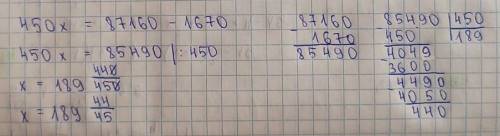 450x = 87160 - 1670
450x = 85490 |: 450
x = 189 440/450
x = 189 44/45
- 87160
1670
85490
- 85490 | 450
450 | 189
- 4049
3600
- 4490
- 4050
440